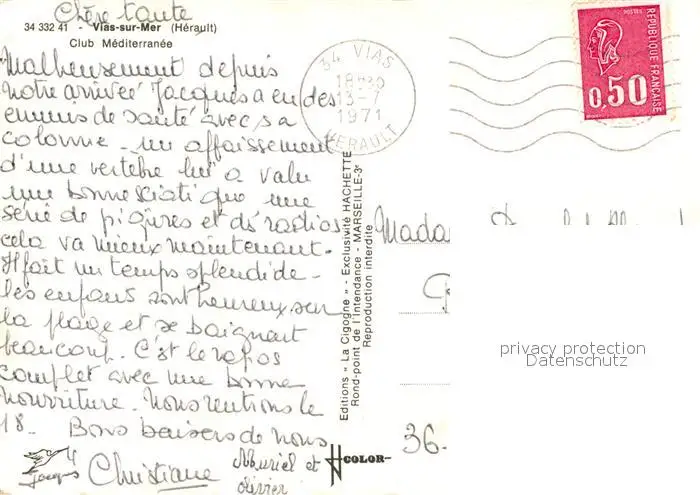 Chère tante
34 332 41 - Vias-sur-Mer (Hérault)
Club Méditerranée
Malheusement depuis
notre arrivée Jacques a eu des
ennuis de santé avec sa
colonne - un affaissement
d'une vertebre lui a valu
une bonne sciatique une
série de piqûres et ds radios
cela va mieux maintenant.
Il fait un temps splendide -
les enfants sont heureux sur
la plage et se baignent
beaucoup. C'est le repos
complet avec une bonne
nourriture. Nous rentrons le
18. Bons baisers de nous
4
Jacques Christiane Muriel et
olivier
34 VIAS
18H30
13-7
1971
HERAULT
POSTES
REPUBLIQUE FRANÇAISE
0,50
Editions « La Cigogne » - Exclusivité HACHETTE
Rond-point de l'Intendance - MARSEILLE-3e
Reproduction interdite
COLOR
Mada
privacy protection
Datenschutz
36.